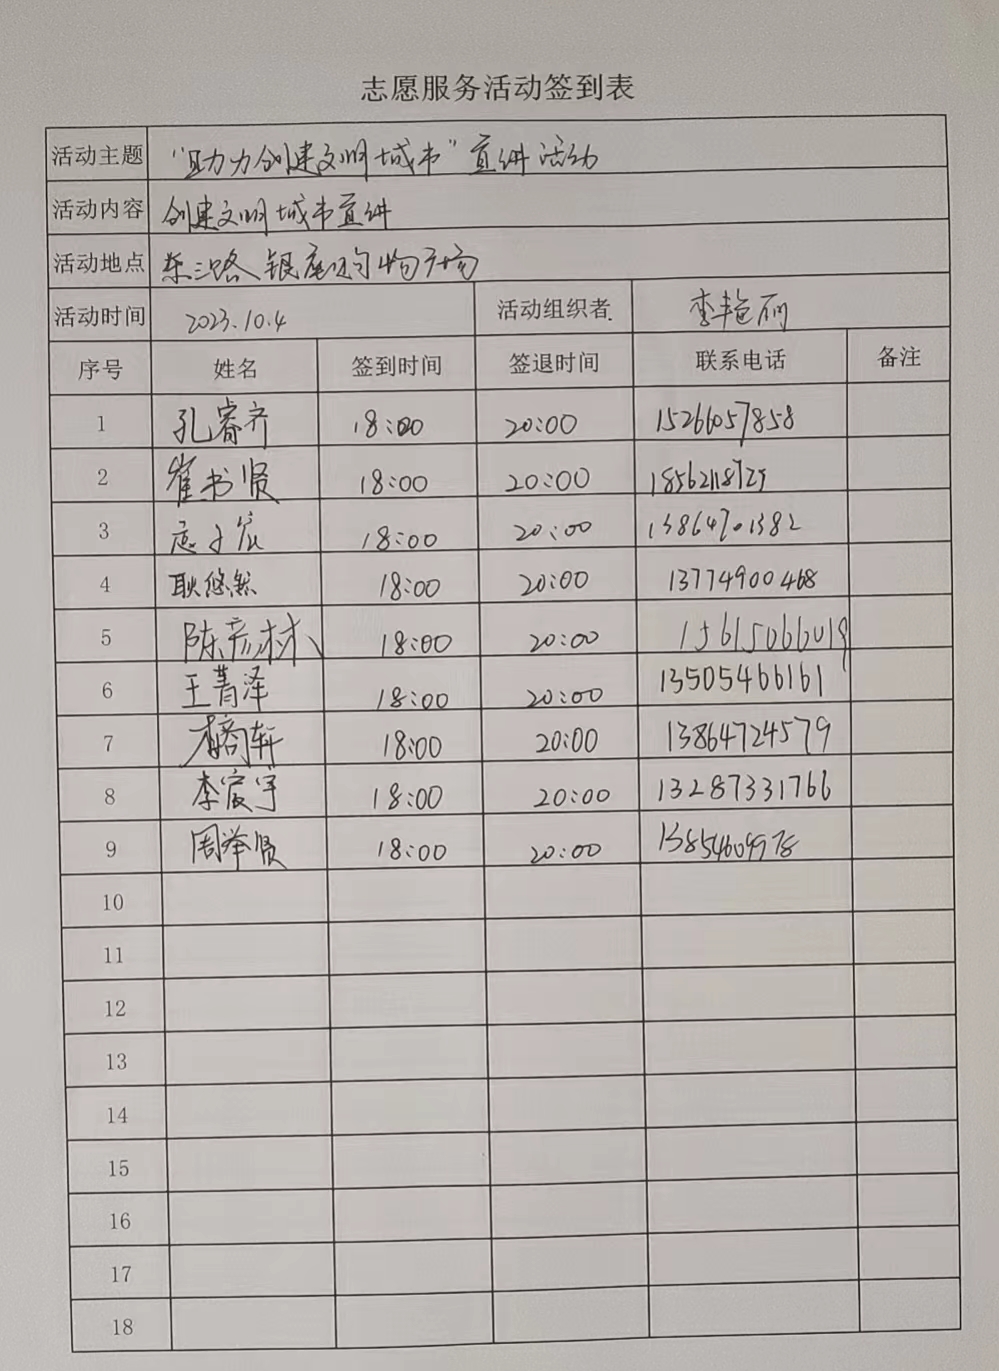 志愿服务活动签到表
活动主题 “助力创建文明城市”宣讲活动
活动内容 创建文明城市宣讲
活动地点 东三路银座购物广场
活动时间 2023.10.4 活动组织者 李艳丽
序号 姓名 签到时间 签退时间 联系电话 备注
1 孔睿齐 18:00 20:00 15266057858
2 崔书贤 18:00 20:00
3 18:00 20:00 13864701382
4 耿悠然 18:00 20:00 13774900468
5 陈彦材 18:00 20:00 15615066019
6 王菁泽 18:00 20:00 13505466161
7 18:00 20:00 13864724579
8 李宸宇 18:00 20:00 13287331766
9 周举贤 18:00 20:00
10
11
12
13
14
15
16
17
18